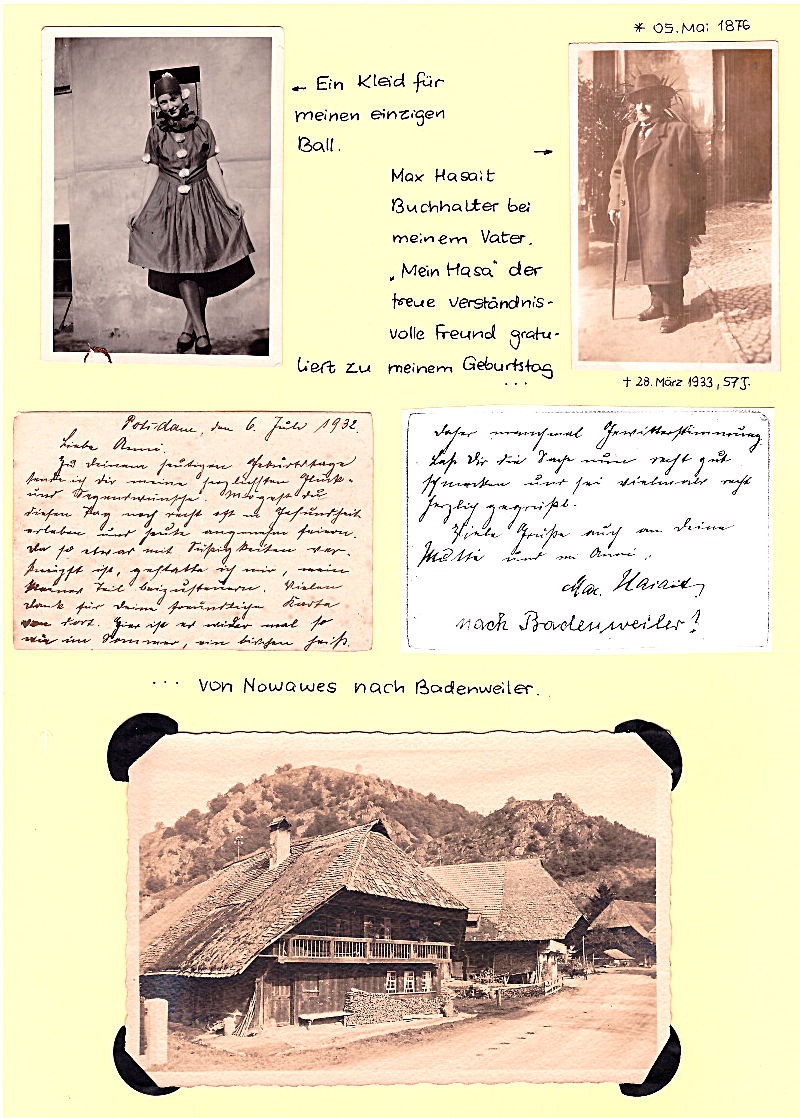 * 05. Mai 1876
← Ein Kleid für
meinen einzigen
Ball.
→
Max Hasait
Buchhalter bei
meinem Vater.
„Mein Hasa" der
treue verständnis-
volle Freund gratu-
liert zu meinem Geburtstag
...
† 28. März 1933, 57 J.
Potsdam, den 6. Juli 1932.
Liebe Anni.
Zu deinem heutigen Geburtstage
sende ich dir meine herzlichsten Glück-
und Segenswünsche. Mögest du
diesen Tag noch recht oft in Gesundheit
erleben und heute angenehm feiern.
Da so etwas mit Süßigkeiten ver-
knüpft ist, gestatte ich mir, mein
kleines Teil beizusteuern. Vielen
Dank für deine freundliche Karte
von dort. Hier ist es wieder mal so
wie im Sommer, ein bischen heiß.
daher manchmal Gewitterstimmung
Laß Dir die Sache nun recht gut
schmecken und sei vielmals recht
herzlich gegrüßt.
Viele Grüße auch an deine
Mutti und
Max Hasait
nach Badenweiler!
... von Nowawes nach Badenweiler.